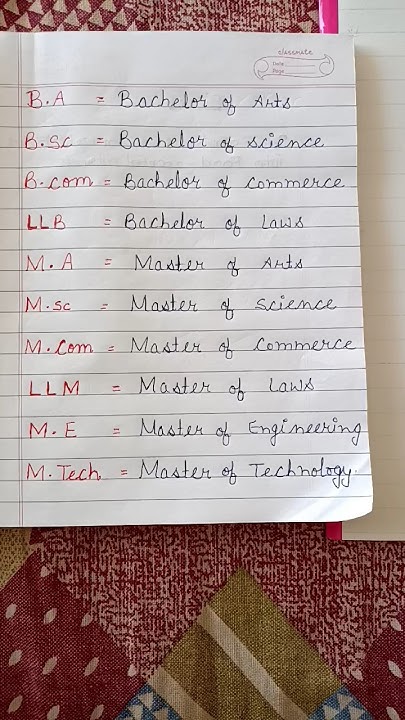 classmate
Date
Page
B.A = Bachelor of Arts
B.Sc = Bachelor of science
B.com = Bachelor of commerce
LLB = Bachelor of Laws
M.A = Master of Arts
M.sc = Master of science
M.com = Master of commerce
LLM = Master of Laws
M.E = Master of Engineering
M.Tech. = Master of Technology.